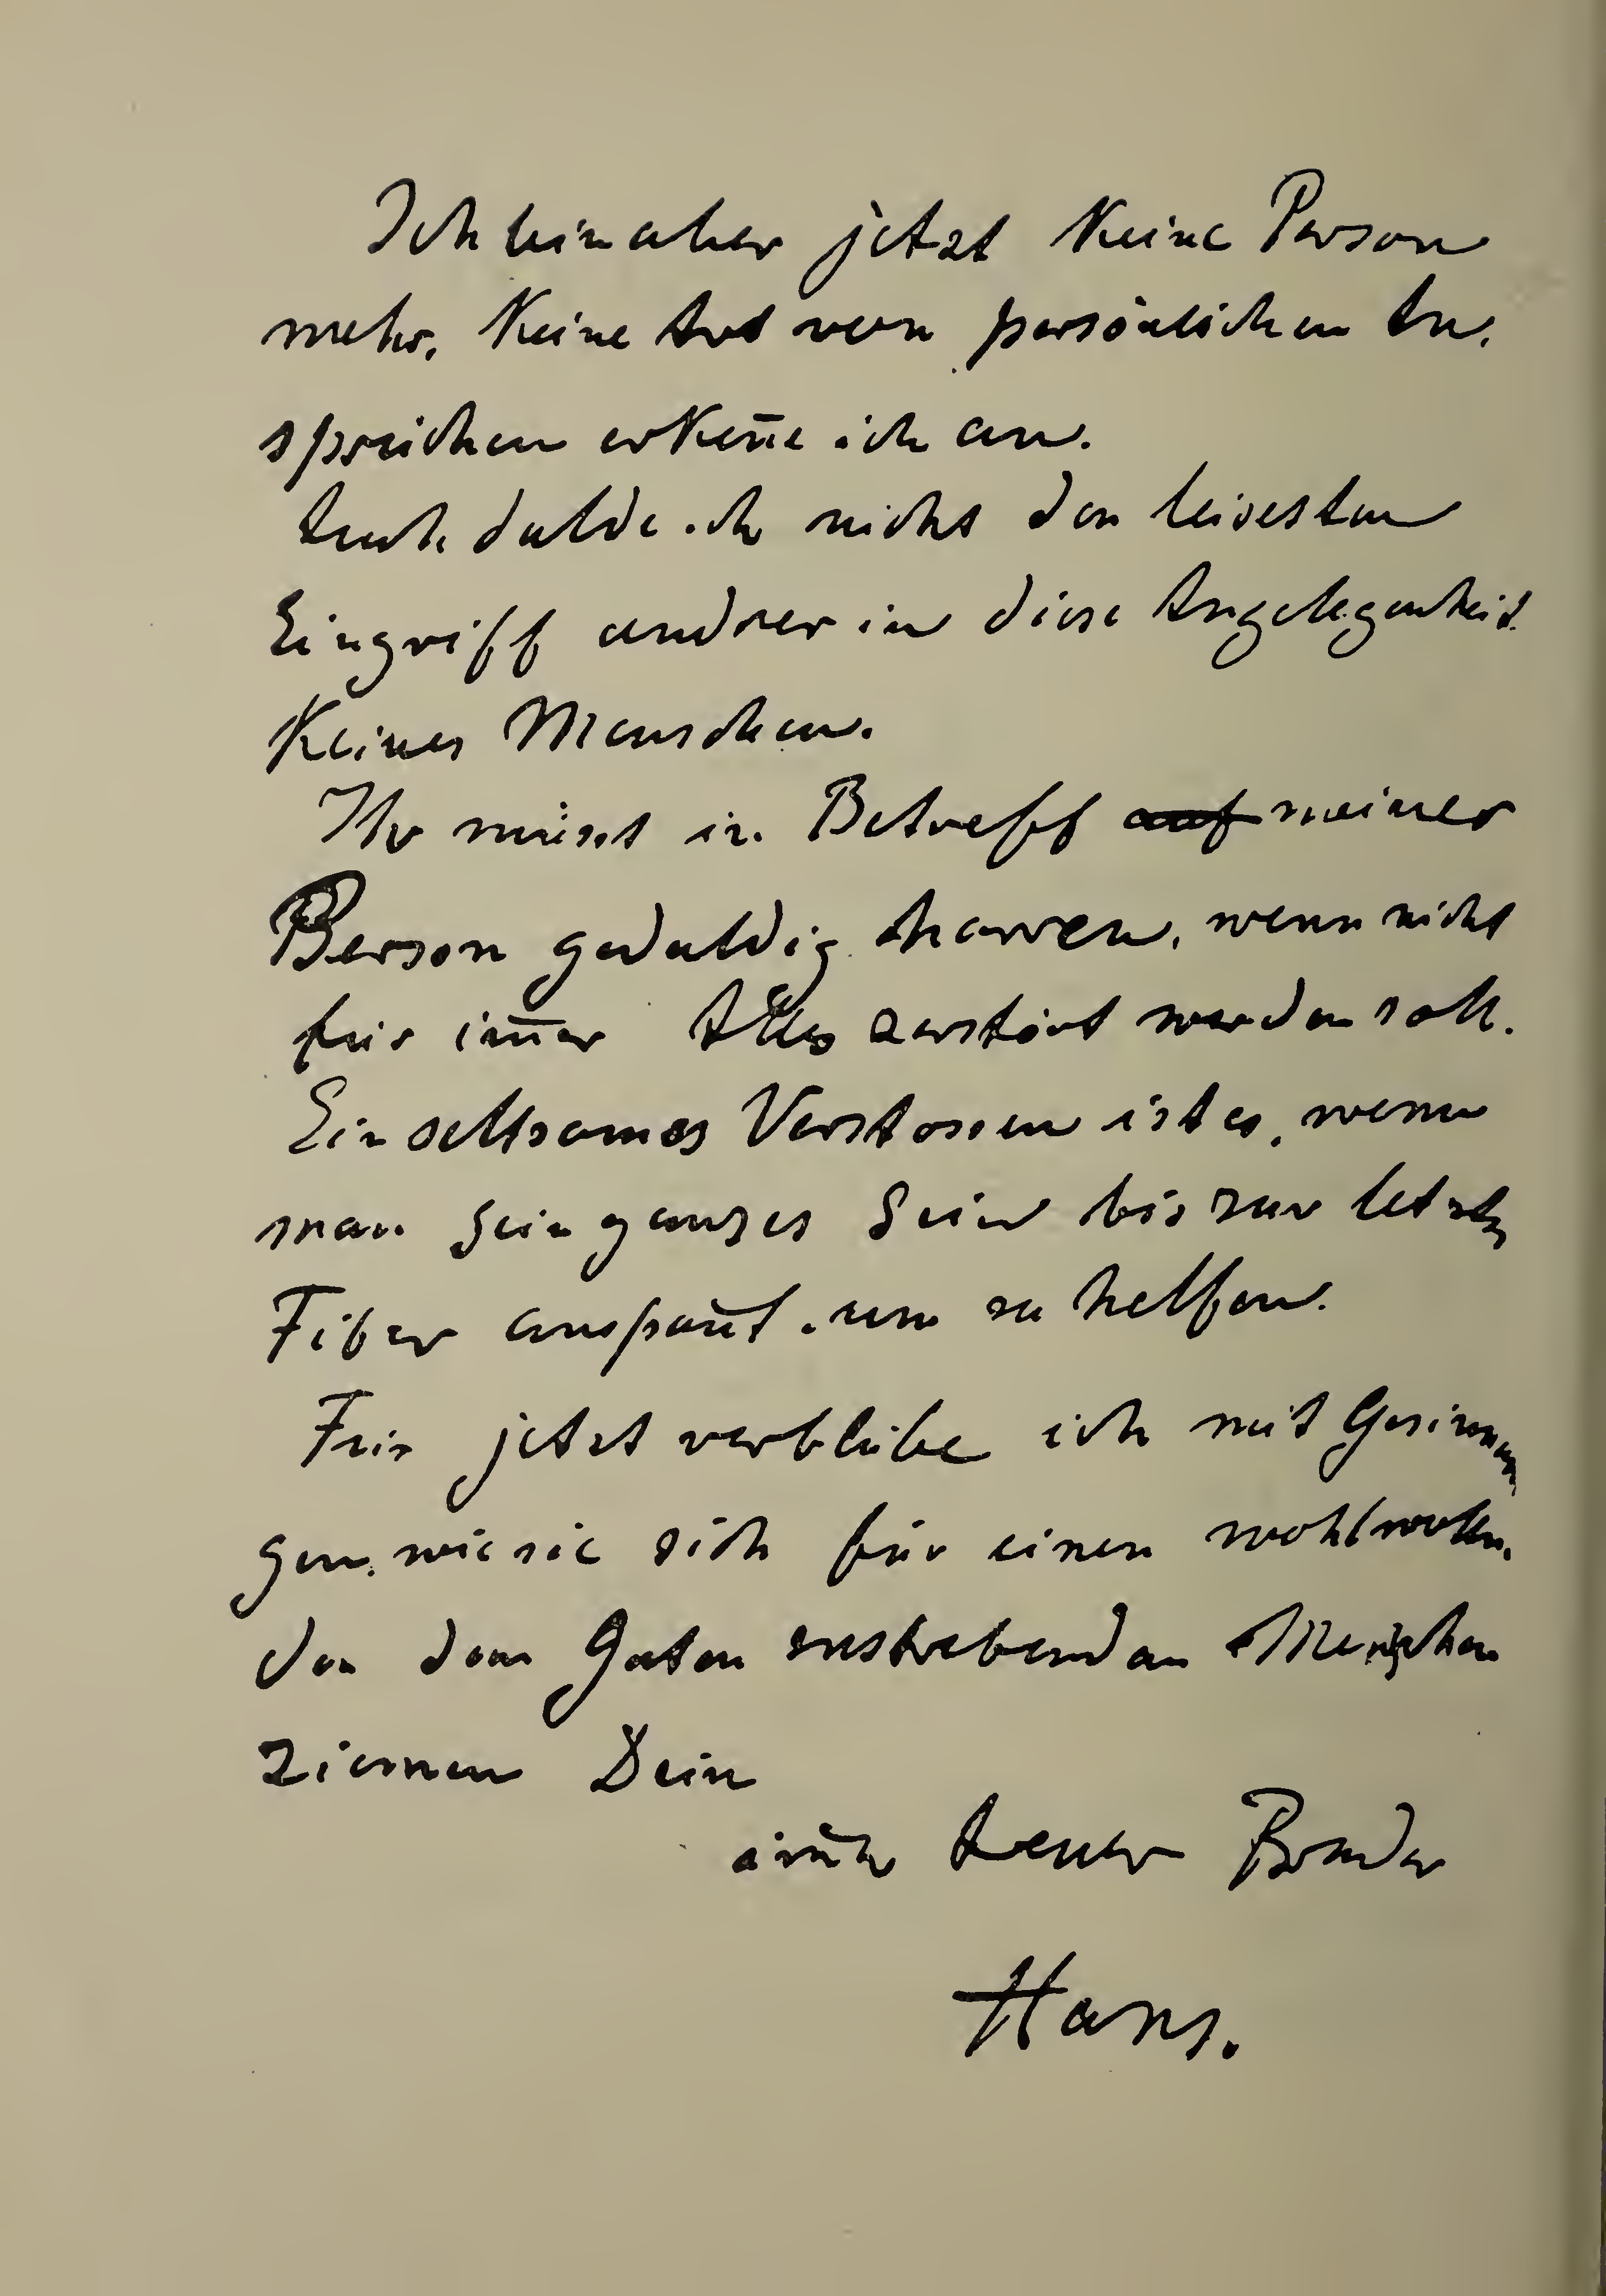 Ich bin aber jetzt keine Person
mehr, keine Art von persönlichen An-
sprüchen erken̄e ich an.
Auch dulde ich nicht den leisesten
Eingriff andrer in diese Angelegenheit
keines Menschen.
Ihr müsst in Betreff ~~auf~~ meiner
Person geduldig harren, wenn nicht
für im̄er Alles zerstört werden soll.
Ein seltsames Verstossen ist es, wenn
man sein ganzes Sein bis zur letzten
Fiber anspan̄t, um zu helfen.
Für jetzt verbleibe ich mit Gesinnun
gen, wie sie sich für einen wohlwollen-
den dem Guten zustrebenden Menschen
ziemen Dein
im̄er treuer Bruder
Hans.